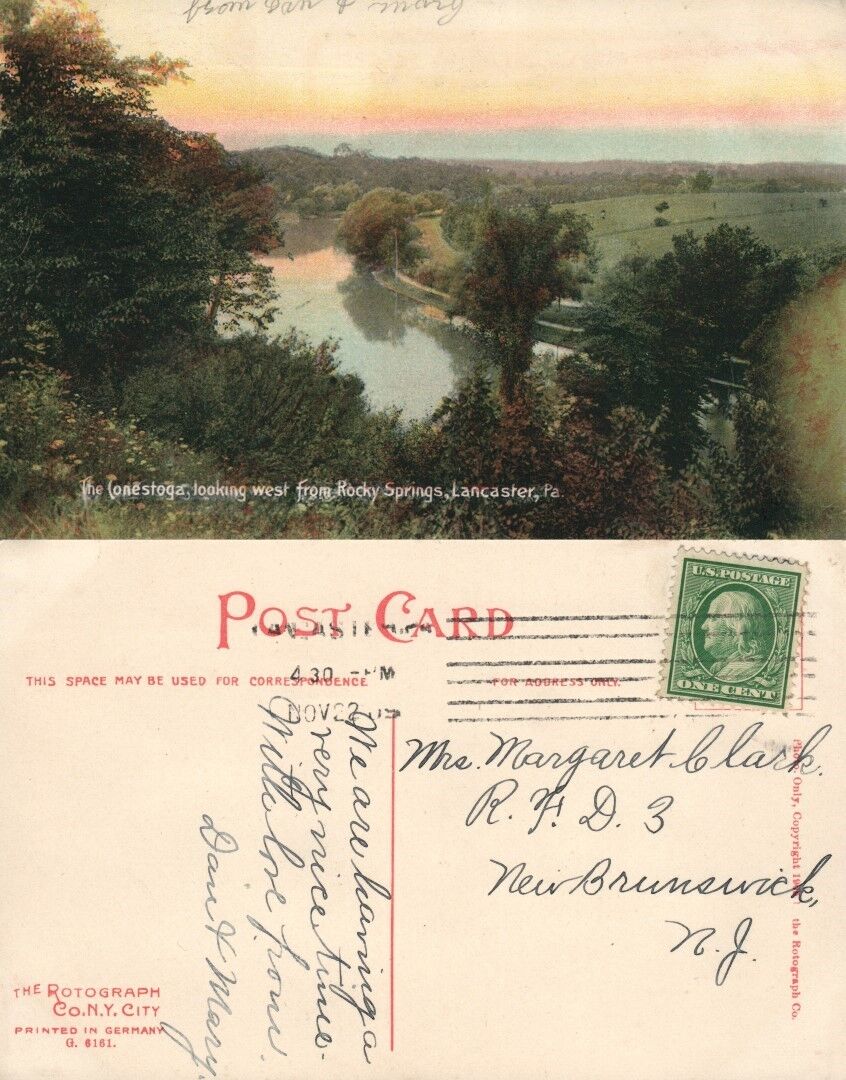 The Conestoga, looking west from Rocky Springs, Lancaster, Pa.
POST CARD
LANCASTER, PA
4 30 - PM
NOV 22 09
THIS SPACE MAY BE USED FOR CORRESPONDENCE
FOR ADDRESS ONLY.
U.S. POSTAGE
ONE CENT
We are having a
very nice time.
With love from.
Dan & Mary.
Mrs. Margaret Clark.
R. F. D. 3
New Brunswick,
N. J.
Photo Only, Copyright the Rotograph Co.
THE ROTOGRAPH
CO. N.Y. CITY
PRINTED IN GERMANY
G. 6161.